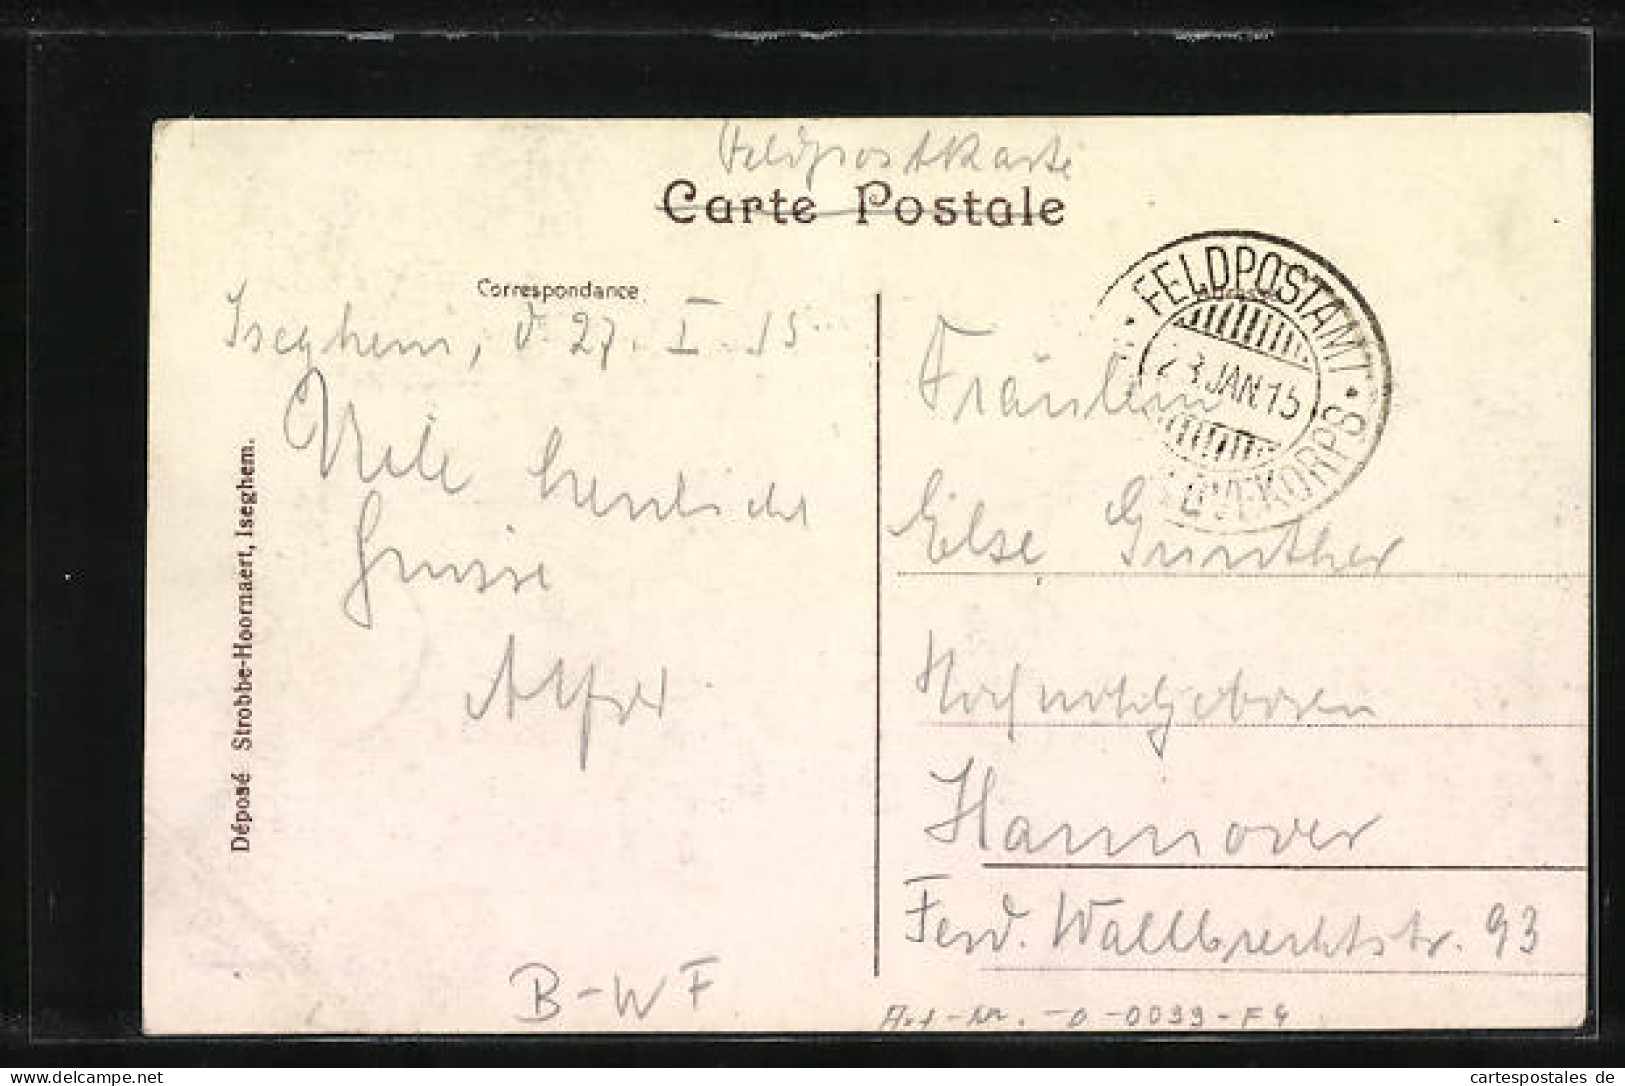 Feldpostkarte
Carte Postale
Correspondance
Iseghem, d. 27. I. 15
Viele herzliche
Grüsse
Alfred
Déposé Strobbe-Hoornaert, Iseghem.
FELDPOSTAMT
28 JAN 15
KORPS
Fräulein
Else Günther
Hochwohlgeboren
Hannover
Ferd. Wallbrechtstr. 93
B-WF
Art-Nr. -0-0099-F4
delcampe.net
cartespostales de